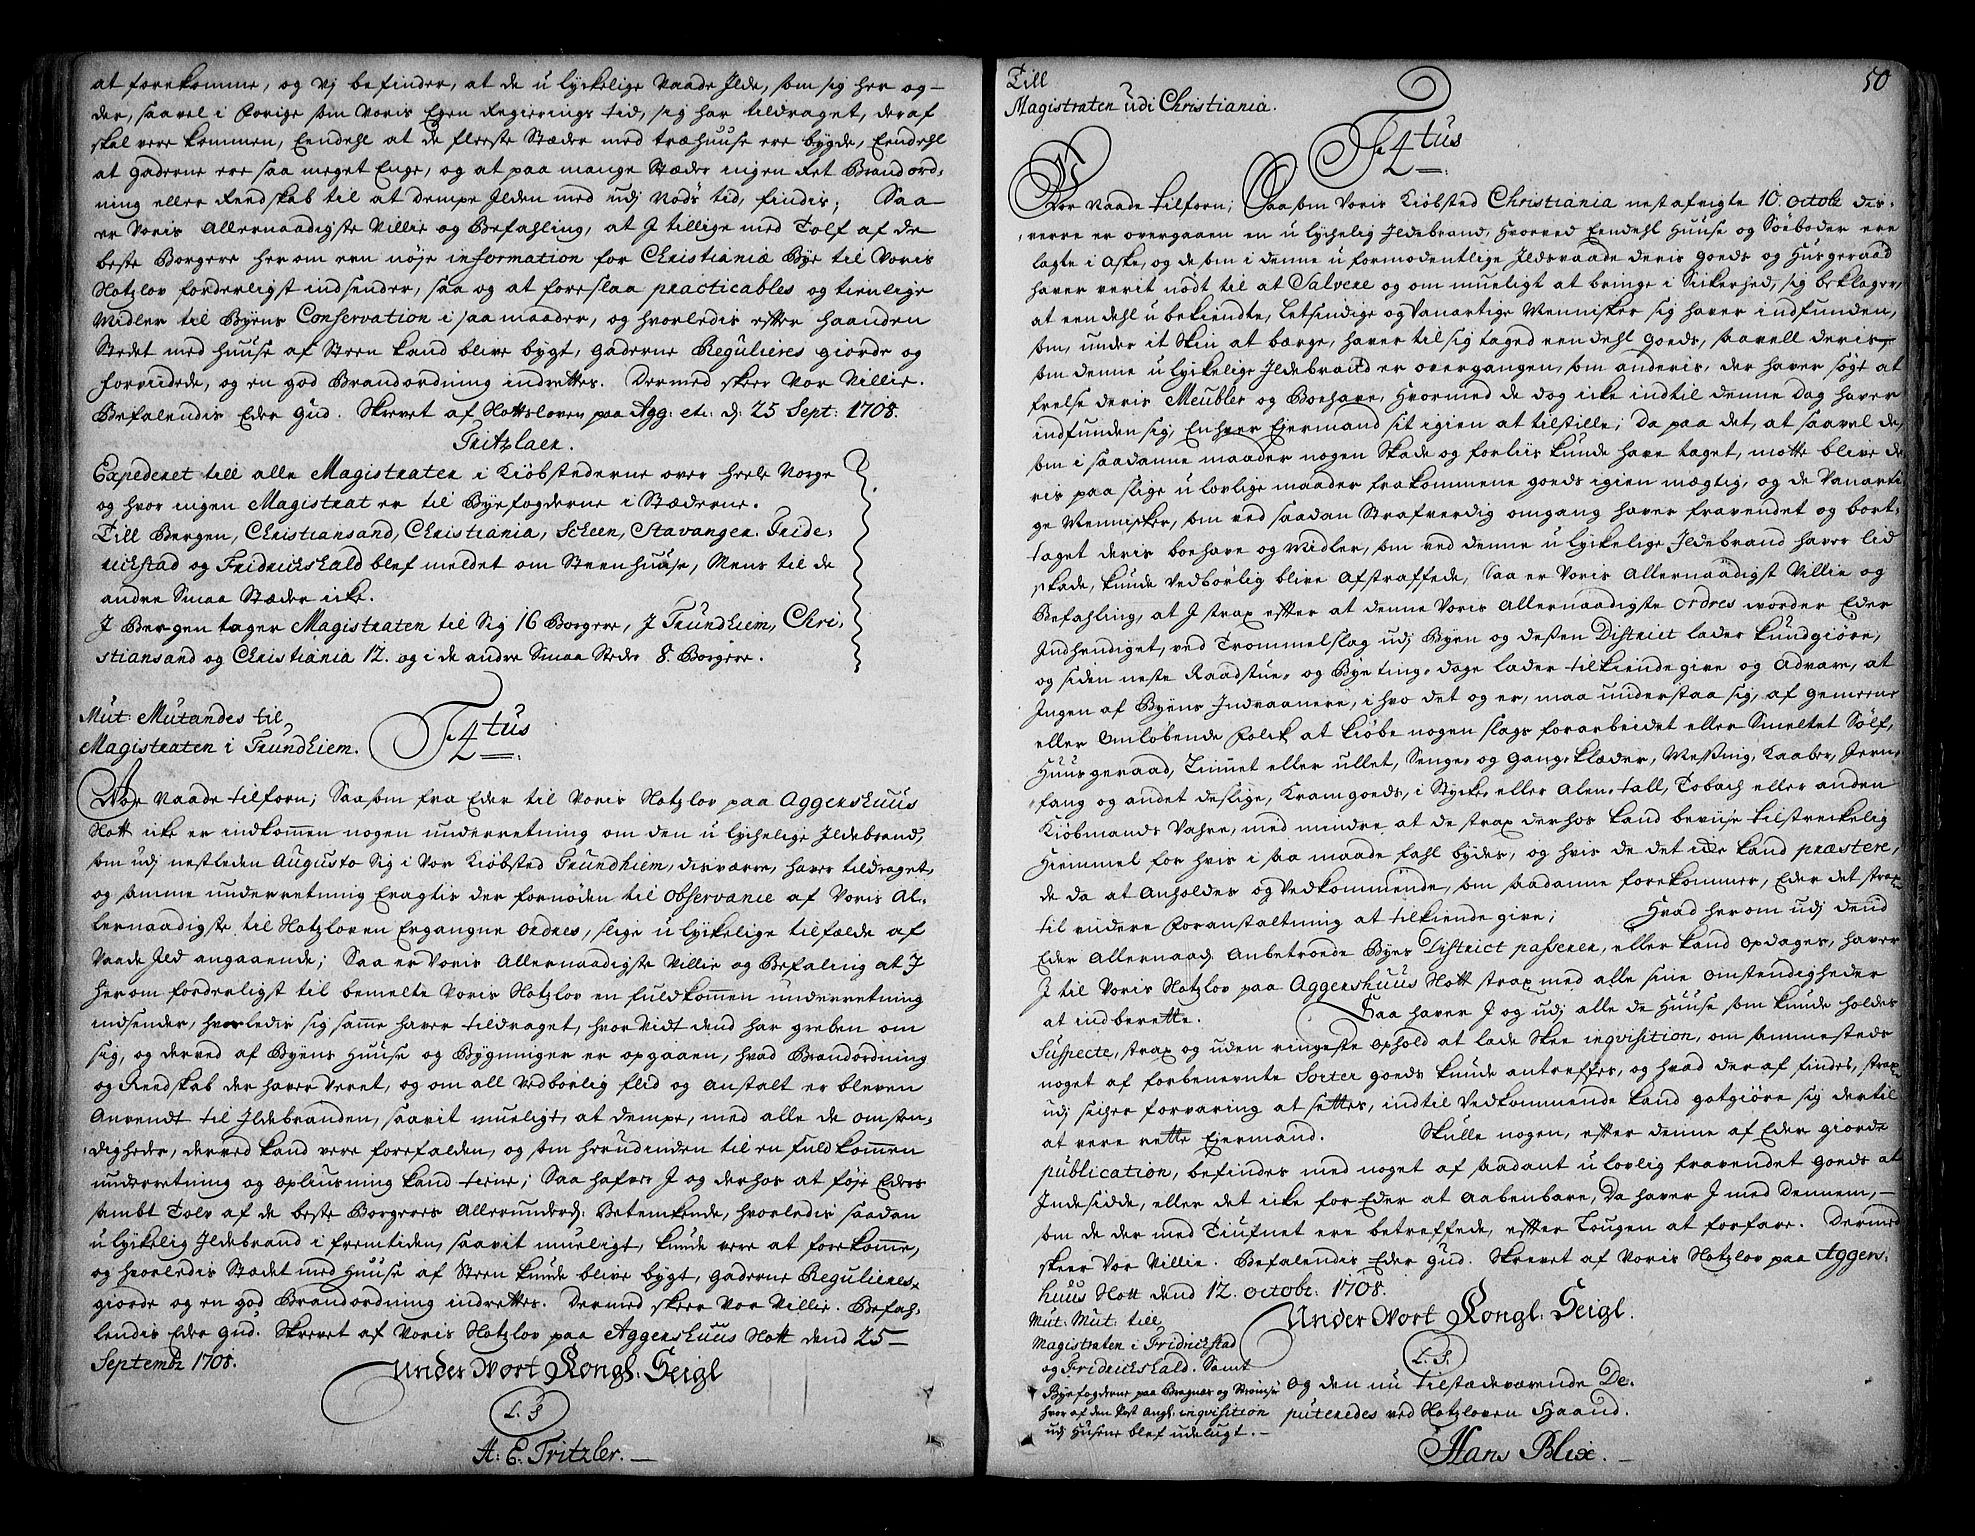 at forekomme, og vj befinder, at de u lyckelige Vaade Jlde, som sig her og-
der, saavel i Forige som Voris Egen Regierings tid, sig har tildraget, deraf
skal vere kommen, Eendehl at de fleeste Stæder med træhuuse ere bygde, Eendehl
at gaderne ere saa meget Enge, og at paa mange Stæder ingen Ret Brandord-
ning eller Reedskab til at dempe Jlden med udj Nøds tid, findis; Saa
er Voris Allernaadigste Villie og Befahling, at J tillige med Tolf af de
beste Borgere her om een nøje information for Christianiæ Bye til Voris
Slotzlov forderligst indsender, saa og at foreslaa practicables og tienlige
Midler til Byens Conservation i saa maader, og hvorledis efter haanden
Stedet med huuse af Steen kand blive bygt, gaderne Regulieres giorde og
forviidede, og en god Brandordning indrettes. Dermed skeer Vor Villie.
Befalendis Eder Gud. Skrevet af Slottsloven paa Agg: etc: d: 25 Sept: 1708.
Tritzlaer.
Expederet till alle Magistrater i Kiöbstederne over heele Norge
og hvor ingen Magistrat er til Byefogderne i Stæderne.
Till Bergen, Christiansand, Christiania, Scheen, Stavanger, Fride-
richstad og Fridrichshald blef meldet om Steenhuuse, Mens til de
andre Smaa Stæder icke.
J Bergen tager Magistraten til Sig 16 Borgere, J Trundhiem, Chri-
stiansand og Christiania 12. og i de andre Smaa Steder 8. Borgere.
Mut: Mutandes til
Magistraten i Trundhiem.
F 4tus
Vor Naade tilforn; Saasom fra Eder til Voris Slotzlov paa Aggershuus
Slott icke er indkommen nogen underretning om den u lychelige Jldebrand,
som udj nestleden Augusto Sig i Vor Kiöbsted Trundhiem, disværre, haver tildraget,
og samme underretning Eragtis der fornöden til Observance af Voris Al-
lernaadigste til Slotzloven Ergangne Ordres, slige u lyckelige tilfælde af
Vaade Jld angaaende; Saa er Voris Allernaadigste Villie og Befaling at J
her om forderligst til bemelte Voris Slotzlov en fuldkommen underretning
indsender, hvorledis sig samme haver tildraget, hvor Vidt dend har greben om
sig, og derved af Byens Huuse og Bygninger er opgaaen, hvad Brandordning
og Reedskab der haver Veret, og om all Vedbörlig flid og Anstalt er bleven
Anvendt til Jldebranden, saavit mueligt, at dempe, med alle de omsten-
digheder, derved kand vere forefalden, og som herudinden til en fuldkommen
underretning og opliusning kand tiene; Saa hafver J og derhos at föje Eders
sambt Tolv af de beste Borgeres Allerunderd: Betenkende, hvorledis saadan
u lyckelig Jldebrand i fremtiden, saavit mueligt, kunde vere at forekomme,
og hvorledis Stædet med Huuse af Steen kunde blive bygt, gaderne Regulieres
giorde og en god Brandordning indrettes. Dermed skeer Vor Villie. Befah-
lendis Eder Gud. Skrevet af Voris Slotzlov paa Aggershuus Slott dend 25
Septembr 1708.
Under Vort Kongl: Seigl
L. S
A. E. Tritzler.
50
Till
Magistraten udi Christiania.
F 4tus
Vor Naade tilforn; Saasom Voris Kiöbsted Christiania nest afvigte 10. Octobr dis-
verre er overgaaen en u lychelig Jldebrand, hvorved Eendehl Huuse og Söeboder ere
lagte i Aske, og de som i denne u formodentlige Jldsvaade deris goeds og Huusgeraad
haver verit nödt til at Salvere og om mueligt at bringe i Sickerhed, sig beklager,
at een dehl u bekiendte, Letsindige og Vanartige Mennisker sig haver indfunden,
som, under it Skin at bærge, haver til sig taged een dehl goeds, saavell deris,
som denne u lyckelige Jldebrand er overgangen, som anderis, der haver søgt at
frelse deris Meubler og Boehave, hvormed de dog icke indtil denne Dag haver
indfunden sig, Enhver Ejermand sit igien at tilstille; Da paa det, at saavel de,
som i saadanne maader nogen Skade og forliis kunde have taget, motte blive de-
ris paa slige u lovlige maader frakommene goeds igien mægtig, og de Vanarti-
ge Mennisker, som ved saadan Strafverdig omgang haver fravendet og bort-
taget deris boehave og Midler, som ved denne u lyckelige Jldebrand haver lid
skade, kunde Vedbörlig blive Afstraffede, Saa er Voris Allernaadigst Villie og
Befahling, at J strax efter at denne Voris Allernaadigste Ordres worder Eder
Jndhendiget, ved Trommelslag udj Byen og dessen District lader kundgiöre,
og siden neste Raadstue- og Byeting-dage lader tilkiende give og Advare, at
Jngen af Byens Jndvaanere, i hvo det og er, maa understaa sig, af gemeene
eller omløbende Folck at kiöbe nogen slags forarbeidet eller Smeltet Sölf,
Huus geraad, Linnet eller ullet, Senge- og Gang-klæder, Messing, Kaaber, Jern-
fang og andet deslige, Kramgoeds, i Stycke- eller Alen-tall, Tobach eller anden
Kiöbmands Vahre, med mindre at de strax derhos kand beviise tilstreckelig
Hiemmel for hvis i saa maade fahl bydes, og hvis de det icke kand præstere,
de da at Anholdes og Vedkommende, som saadanne forekommer, Eder det strax
til viidere Foranstaltning at tilkiende give; Hvad her om udj dend
Eder Allernaad: Anbetroede Byes District passerer, eller kand opdages, haver
J til Voris Slotzlov paa Aggershuus Slott strax med alle sine omstendigheder
at indberette. Saa haver J og udj alle de Huuse som kunde holdes
Suspecte, strax og uden ringeste Ophold at lade Skee inqvisition, om sammesteds
noget af forbenevnte Sorter goeds kunde antreffes, og hvad der af findes, strax
udj sicher forvaring at settes, indtil Vedkommende kand gotgiöre sig dertil
at vere rette Ejermand. Skulle nogen, efter denne af Eder giorde
publication, befindes med noget af saadant u lovlig fravendet goeds at
Jndesidde, eller det icke for Eder at Aabenbare, Da haver J med dennem,
som de der med Tiufnet ere betreffede, efter Lougen at forfare. Dermed
skeer Vor Villie. Befalendis Eder Gud. Skrevet af Voris Slotzlov paa Aggers-
huus Slott dend 12. octobr: 1708.
Under Vort Kongl: Seigl.
L. S.
Mut: Mut: till
Magistraten i Fridrichstad
og Fridrichshald. Samt
Byefogderne paa Bragnæs og
hvor af den Post Angl: inqvisition
udj Husene blef udelugt.
Og den nu tilstædeværende De-
puteredes ved Slotzloven Haand.
Hans Blix.